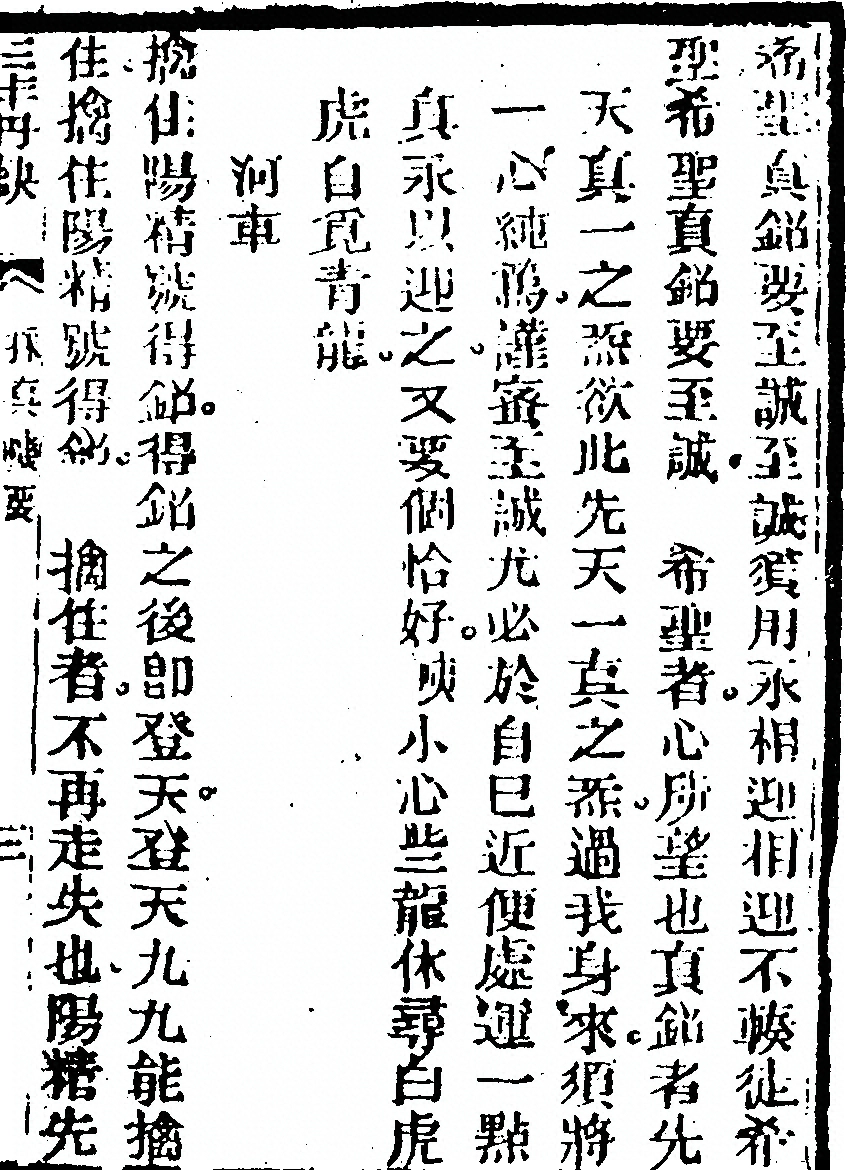 希聖真鉛要至誠至誠須用汞相迎相迎不輳徒希
聖希聖真鉛要至誠　希聖者心所望也真鉛者先
天真一之炁欲此先天一真之炁過我身來須將
一心純篤謹密至誠尤必於自己近便處運一點
真汞以迎之又要個恰好　小心些龍休尋白虎
虎自覓青龍
河車
擒住陽精號得鉛得鉛之後即登天登天九九能擒
住擒住陽精號得鉛　擒住者不再走失也陽精先
三丰丹訣　採真機要　三